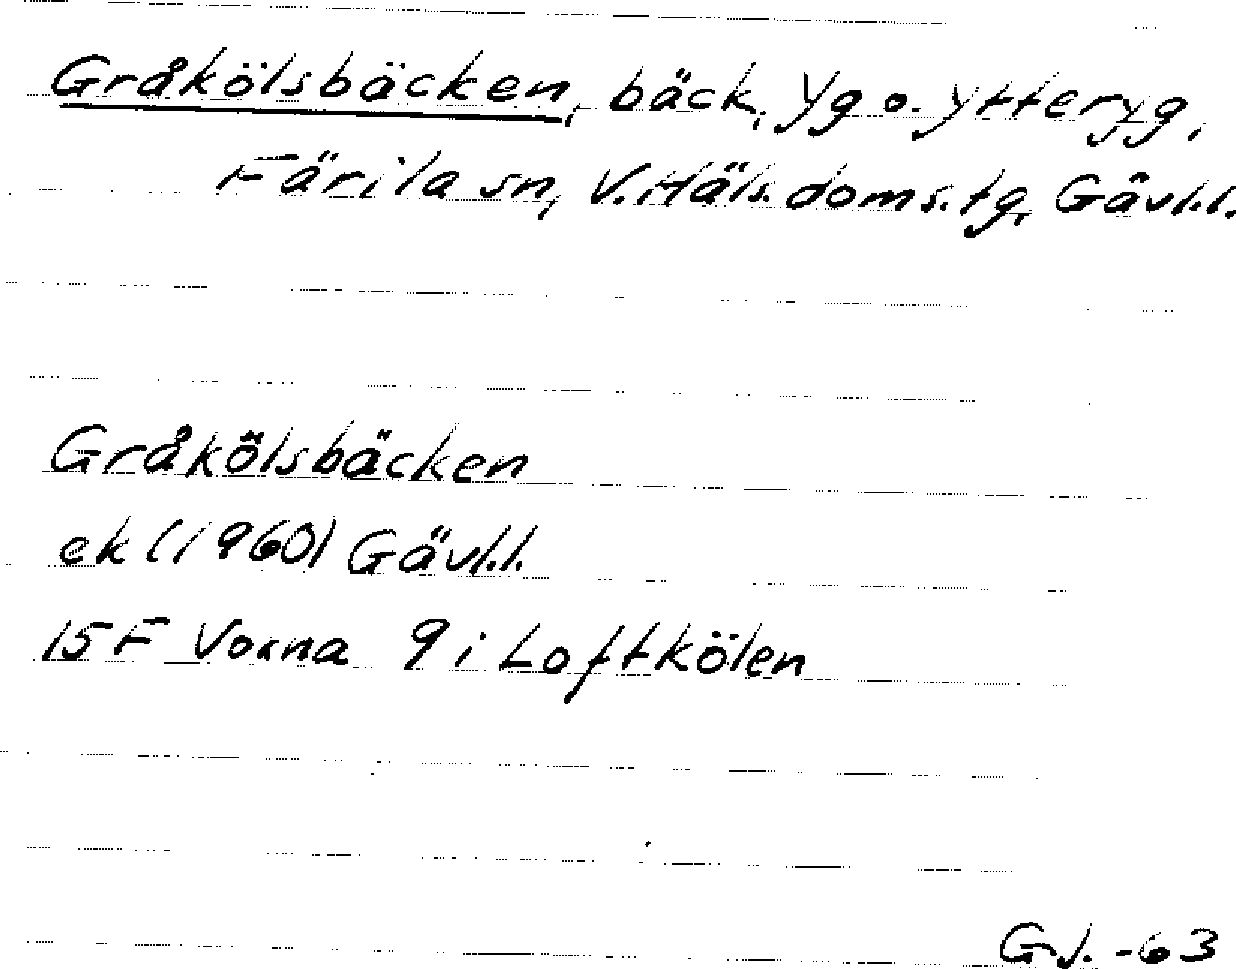 Gråkölsbäcken, bäck, Yg o. Ytteryg,
Färila sn, V.Häls. doms.tg, Gävl.l.
Gråkölsbäcken
ek (1960) Gävl.l.
15F Voxna 9i Loftkölen
GJ. -63